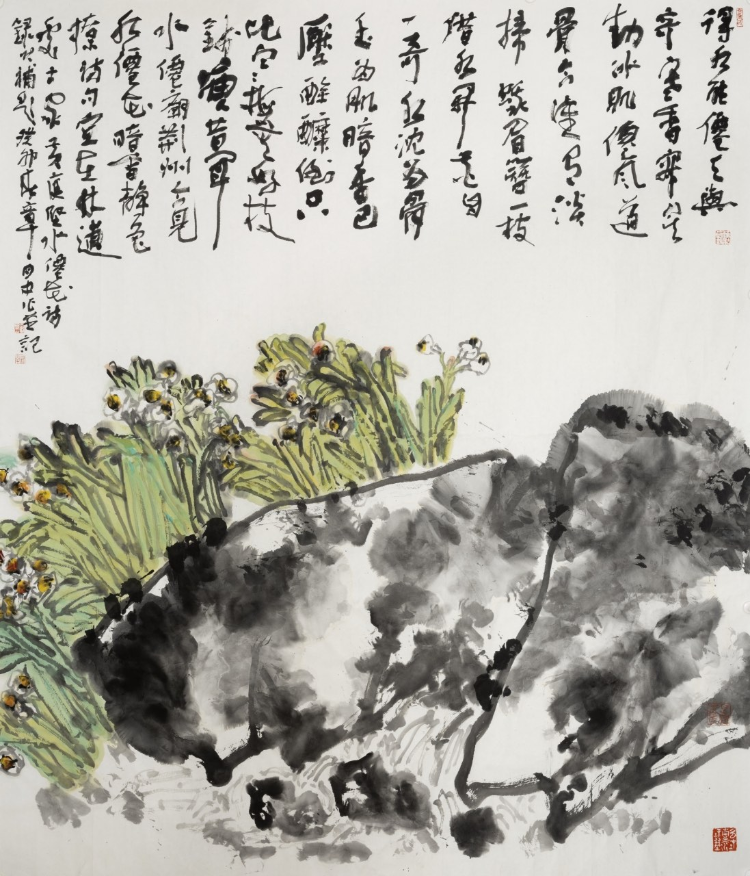 得水能僊天與
奇寒香寂寞
動冰肌僊風道
骨今誰有淡
掃蛾眉簪一枝
借水開花自
一奇水沉為骨
玉為肌暗香已
壓酴醾倒只
比寒梅無好枝
錢塘昔聞
水僊廟荊州今見
水僊花暗香靜色
撩詩句宜在林逋
處士家黃庭堅水僊花詩
錄癸卯春記